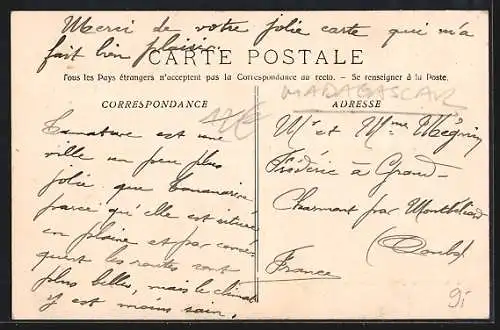 Merci de votre jolie carte qui m'a
fait bien plaisir.
CARTE POSTALE
Tous les Pays étrangers n'acceptent pas la Correspondance au recto. — Se renseigner à la Poste.
CORRESPONDANCE
Tamatave est une
ville un peu plus
jolie que Tananarive
parce qu'elle est située
en plaine et par consé-
quent les routes sont
plus belles, mais le climat
y est moins sain.
MADAGASCAR
ADRESSE
Mr et Mme Mégnin
Frédéric à Grand-
Charmont par Montbéliard
(Doubs)
France